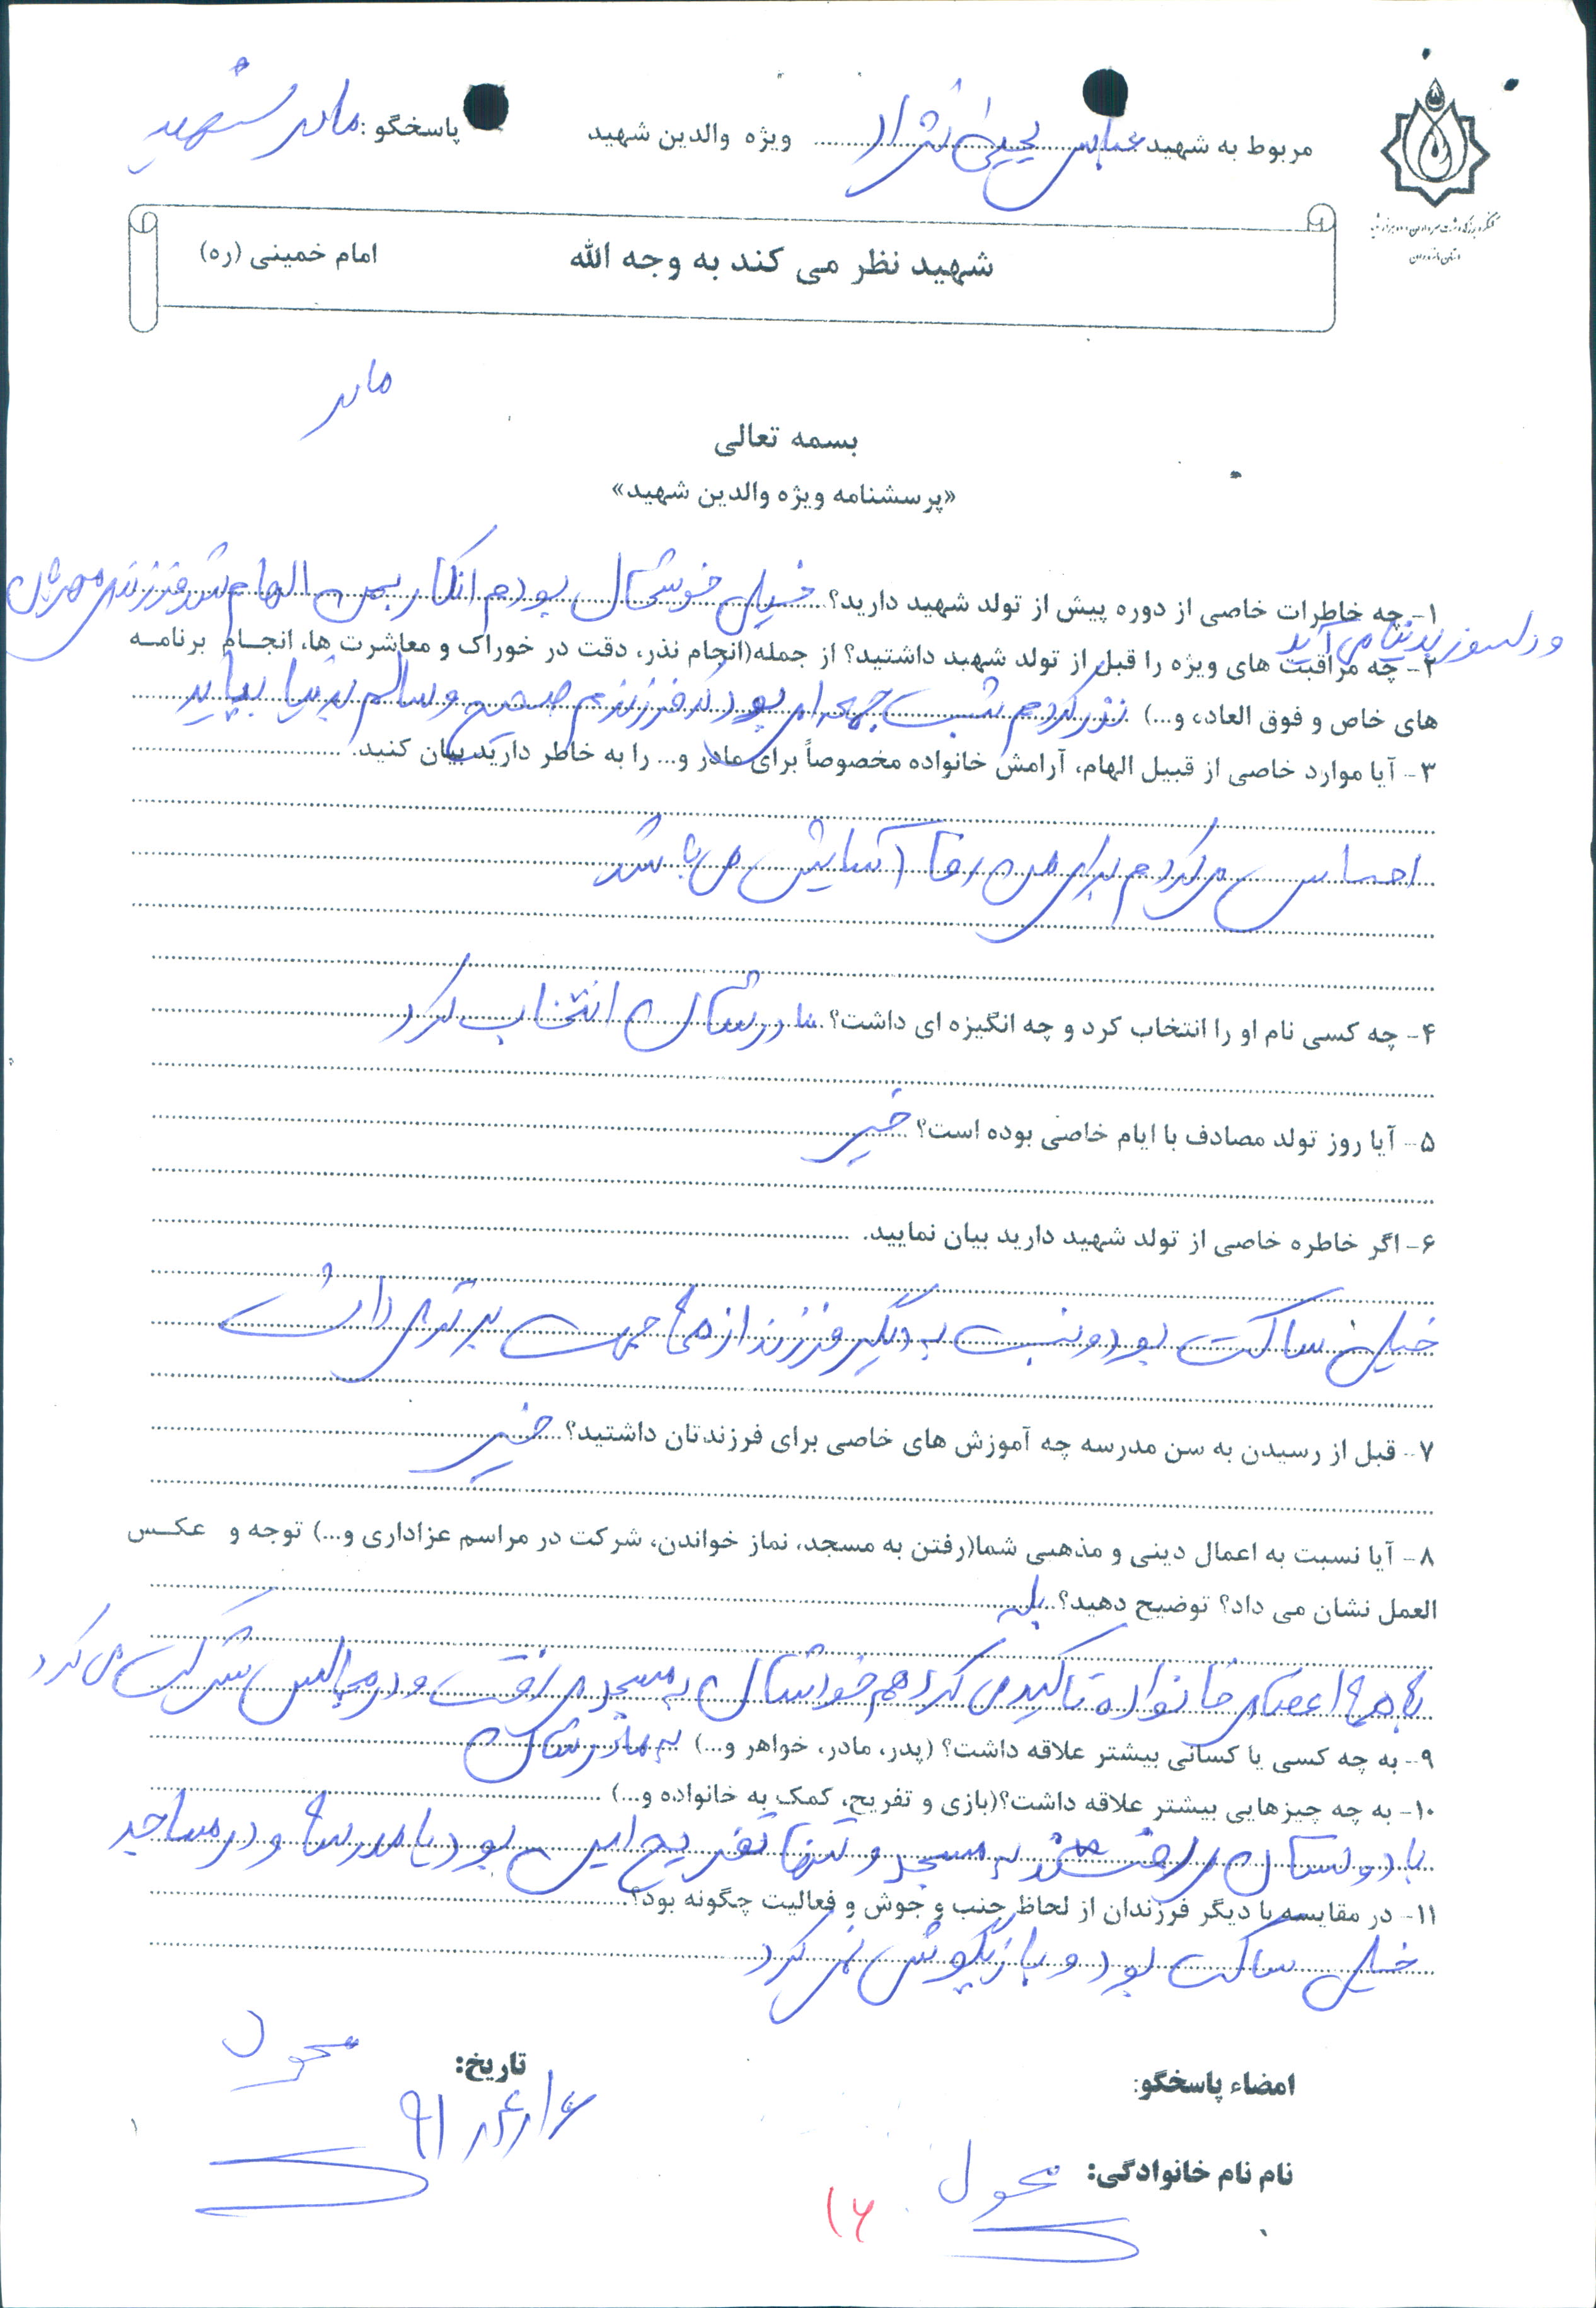 مربوط به شهید عباس یحیی نژاد ویژه والدین شهید پاسخگو: مادر شهید
شهید نظر می کند به وجه الله امام خمینی (ره)
مادر
بسمه تعالی
«پرسشنامه ویژه والدین شهید»
۱- چه خاطرات خاصی از دوره پیش از تولد شهید دارید؟ خیلی خوشحال بودم انگار بمن الهام شد فرزندی مهربان
و دلسوز بدنیا می آید
۲- چه مراقبت های ویژه را قبل از تولد شهید داشتید؟ از جمله(انجام نذر، دقت در خوراک و معاشرت ها، انجام برنامه
های خاص و فوق العاده و...) نذر کردم شب جمعه ای بود که فرزندم صحیح و سالم بدنیا بیاید
۳- آیا موارد خاصی از قبیل الهام، آرامش خانواده مخصوصاً برای مادر و... را به خاطر دارید بیان کنید.
احساس می کردم برای من رفاه آسایش می باشد
۴- چه کسی نام او را انتخاب کرد و چه انگیزه ای داشت؟ مادرشان انتخاب کرد
۵- آیا روز تولد مصادف با ایام خاصی بوده است؟ خیر
۶- اگر خاطره خاصی از تولد شهید دارید بیان نمایید.
خیلی ساکت بود و نسبت به دیگر فرزند از همه جهت برتری داشت
۷- قبل از رسیدن به سن مدرسه چه آموزش های خاصی برای فرزندتان داشتید؟ خیر
۸- آیا نسبت به اعمال دینی و مذهبی شما(رفتن به مسجد، نماز خواندن، شرکت در مراسم عزاداری و...) توجه و عکس
العمل نشان می داد؟ توضیح دهید؟ بله
به همه اعضای خانواده تاکید می کرد هم خودشان به مسجد می رفت و در مجالس شرکت می کرد
۹- به چه کسی یا کسانی بیشتر علاقه داشت؟ (پدر، مادر، خواهر و...) به مادرشان
۱۰- به چه چیزهایی بیشتر علاقه داشت؟(بازی و تفریح، کمک به خانواده و...)
با دوستان می رفتند به مسجد و تنها تفریح این بود یا مدرسه و در مساجد
۱۱- در مقایسه با دیگر فرزندان از لحاظ جنب و جوش و فعالیت چگونه بود؟
خیلی ساکت بود و بازیگوشی نمی کرد
امضاء پاسخگو: تاریخ:
نام نام خانوادگی:
۱۶
۱